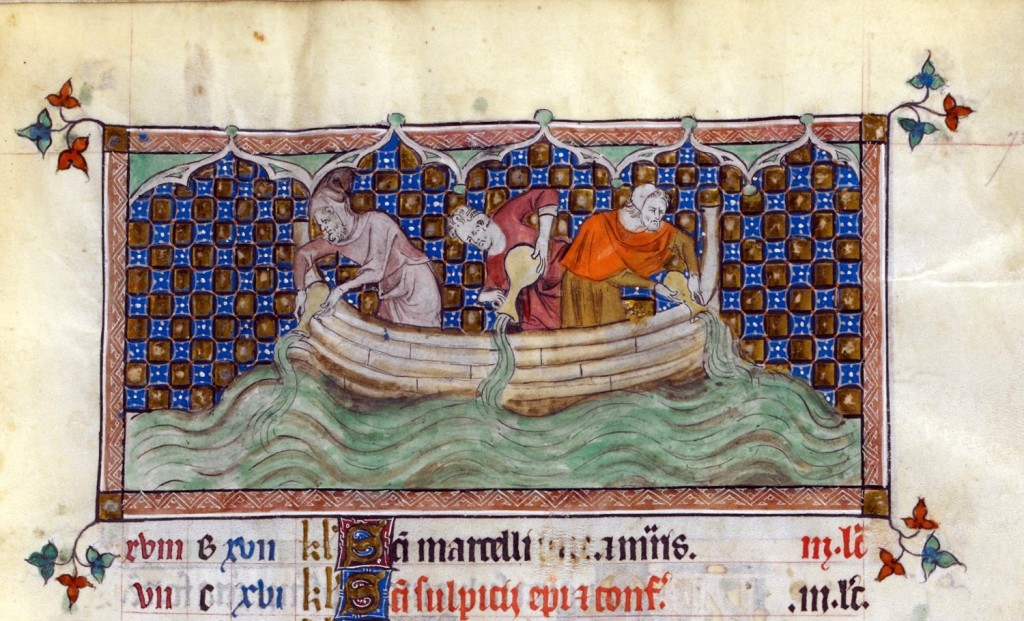 xviii G xvii kl' Sci marcelli .amiris. iij.lc
vii c xvi kl' Sci sulpicij epi ⁊ conf'. .iij.lc.